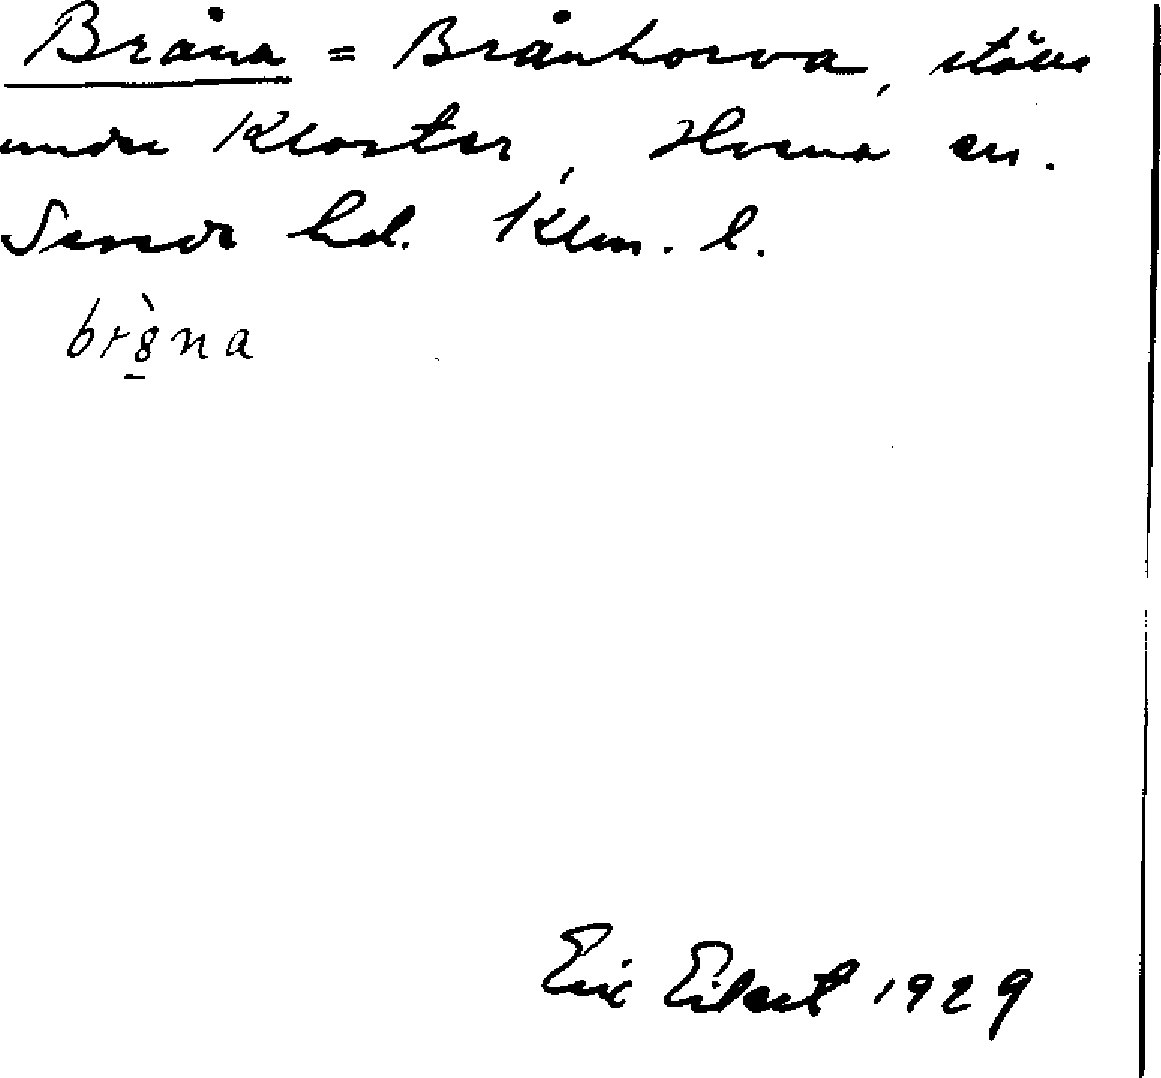 Bråna = Brånhorva,
under Kloster, Hvena sn.
Sevede hd. Klm. l.
br8̀na
Eric Eilert 1929